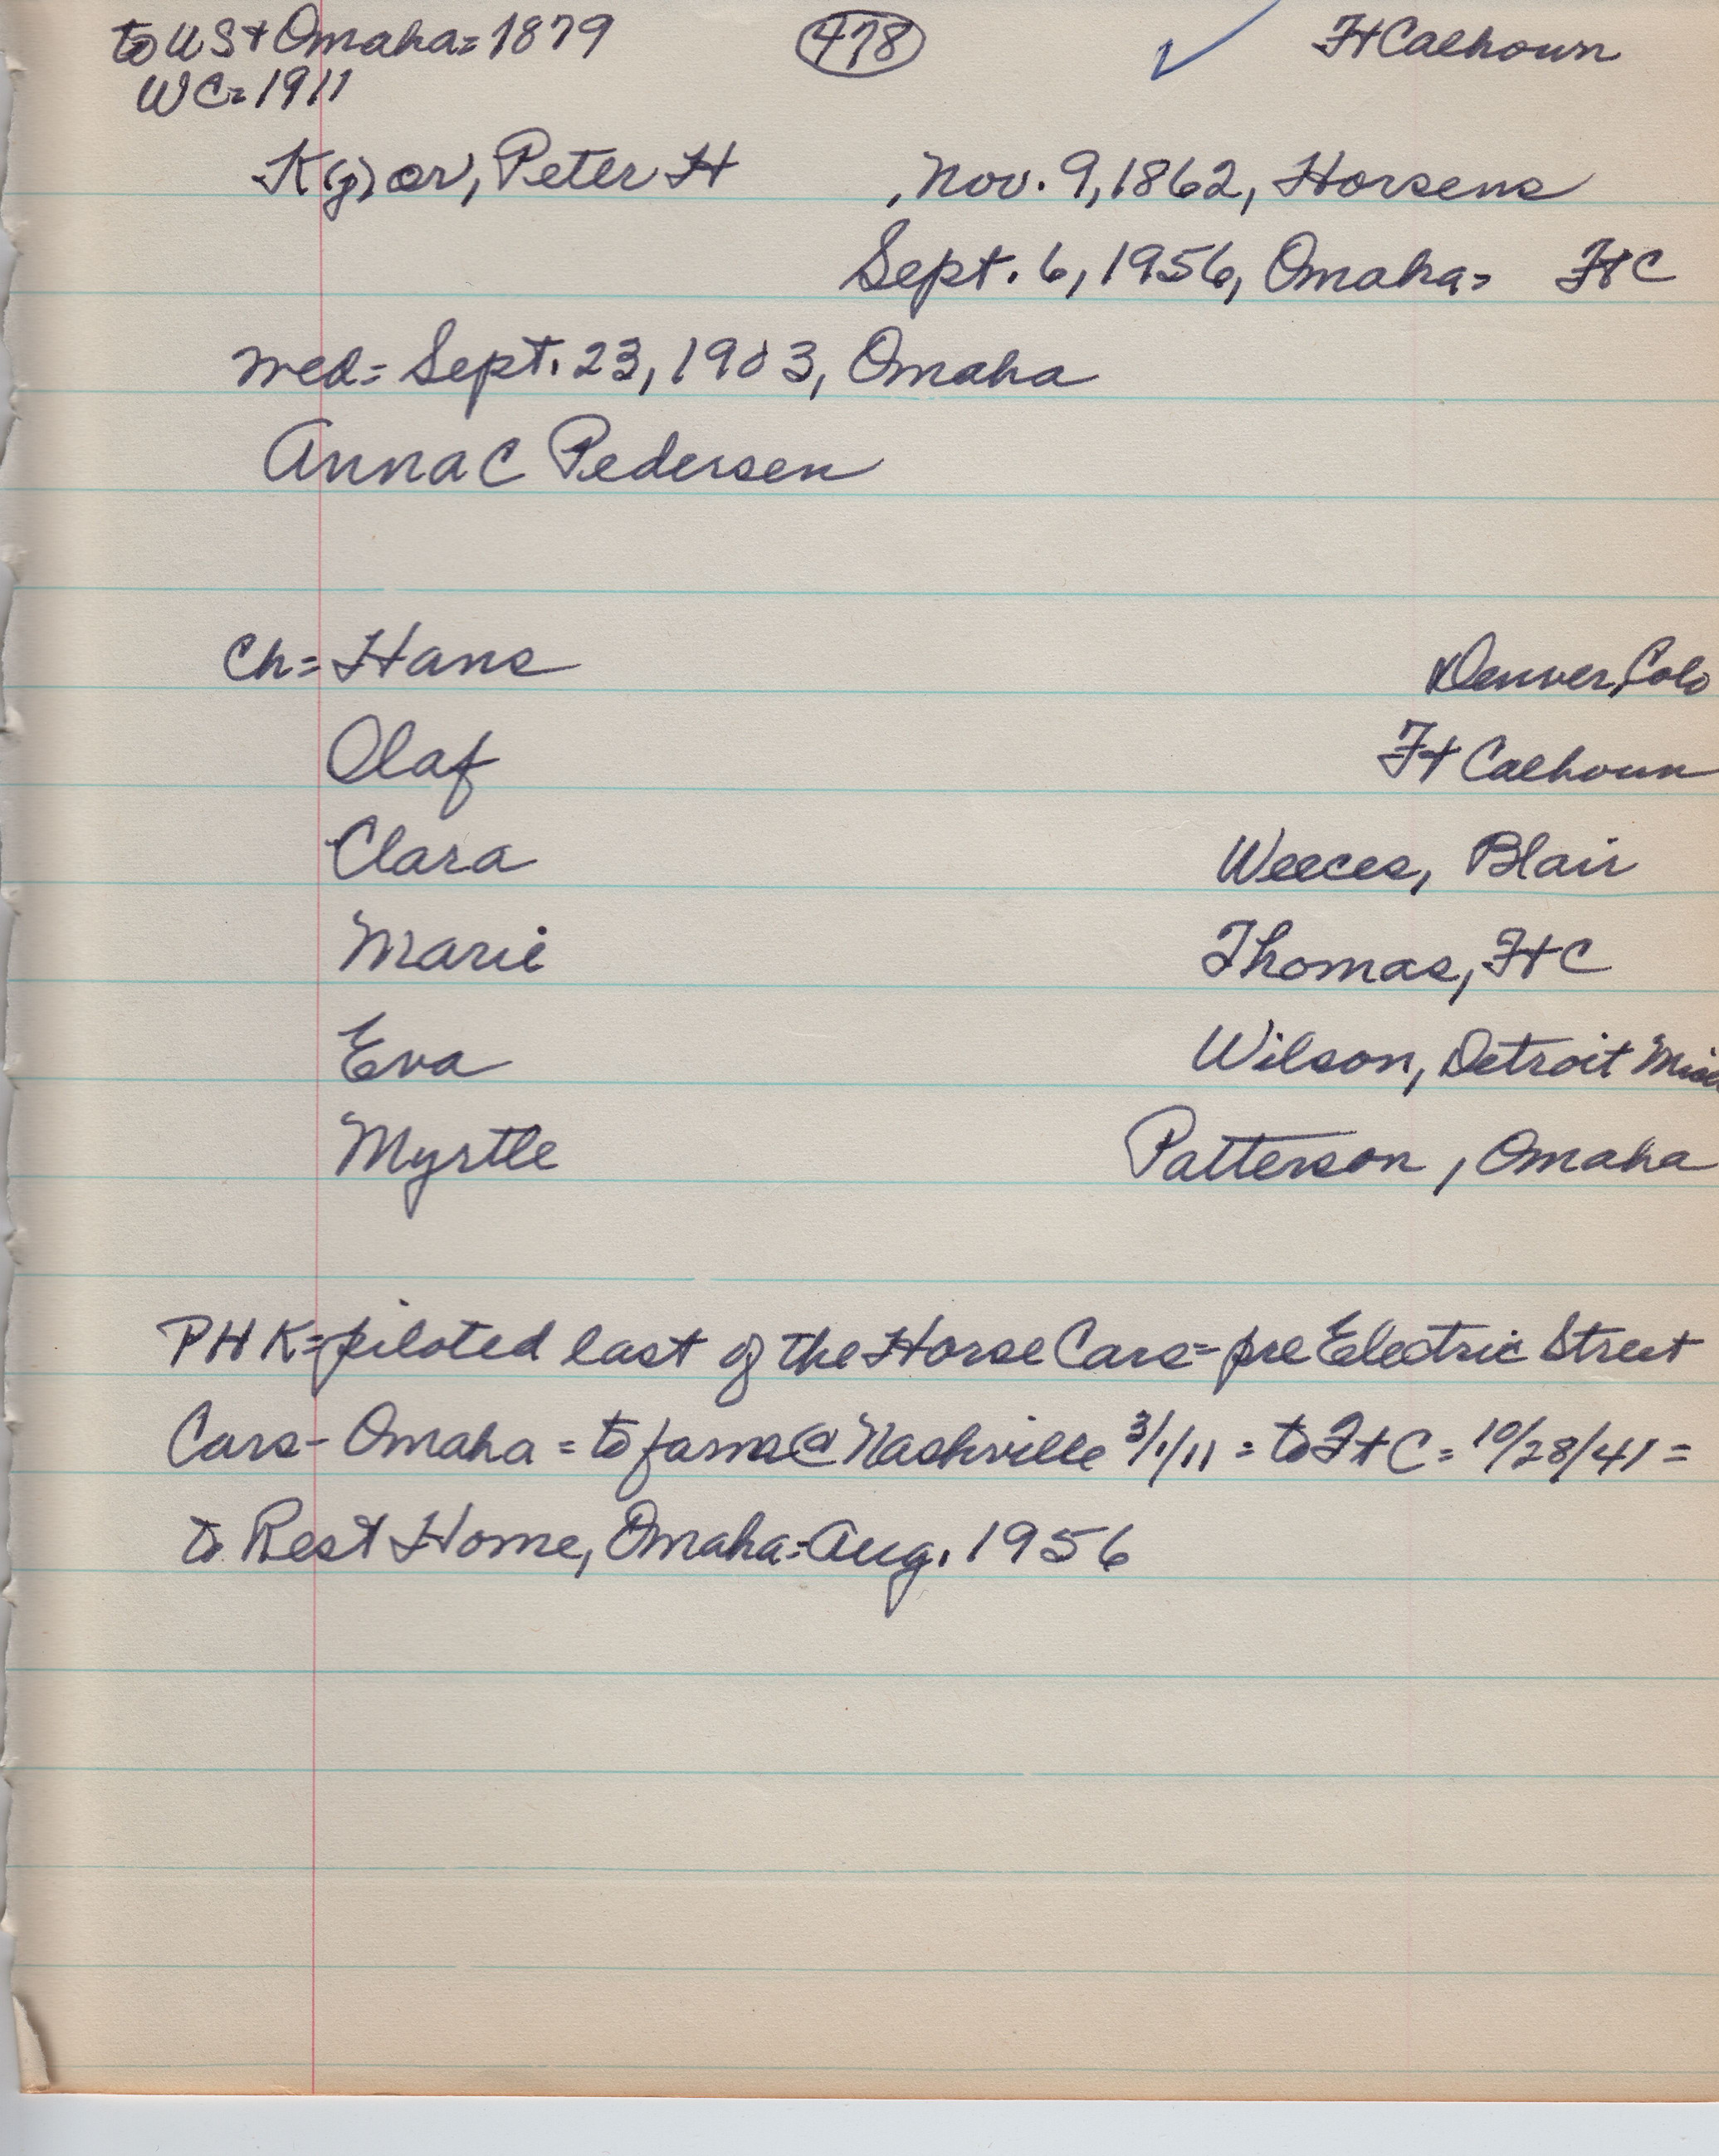 to US + Omaha = 1879 478 Ft Calhoun
WC = 1911
K(j)or, Peter H , Nov. 9, 1862, Horsens
Sept. 6, 1956, Omaha = Ft C
wed = Sept. 23, 1903, Omaha
Anna C Pedersen
Ch = Hans Denver, Colo
Olaf Ft Calhoun
Clara Weeces, Blair
Marie Thomas, Ft C
Eva Wilson, Detroit
Myrtle Patterson, Omaha
PHK = piloted last of the Horse Cars = pre Electric Street
Cars - Omaha = to farm @ Nashville 3/1/11 = to Ft C = 10/28/41 =
to Rest Home, Omaha = Aug. 1956